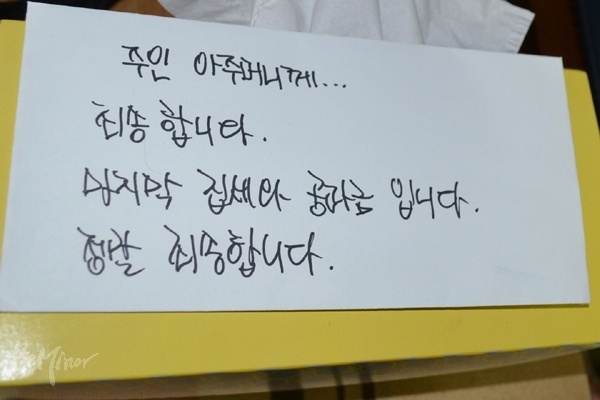 주인 아주머니께...
죄송합니다.
마지막 집세와 공과금 입니다.
정말 죄송합니다.
BeMinor